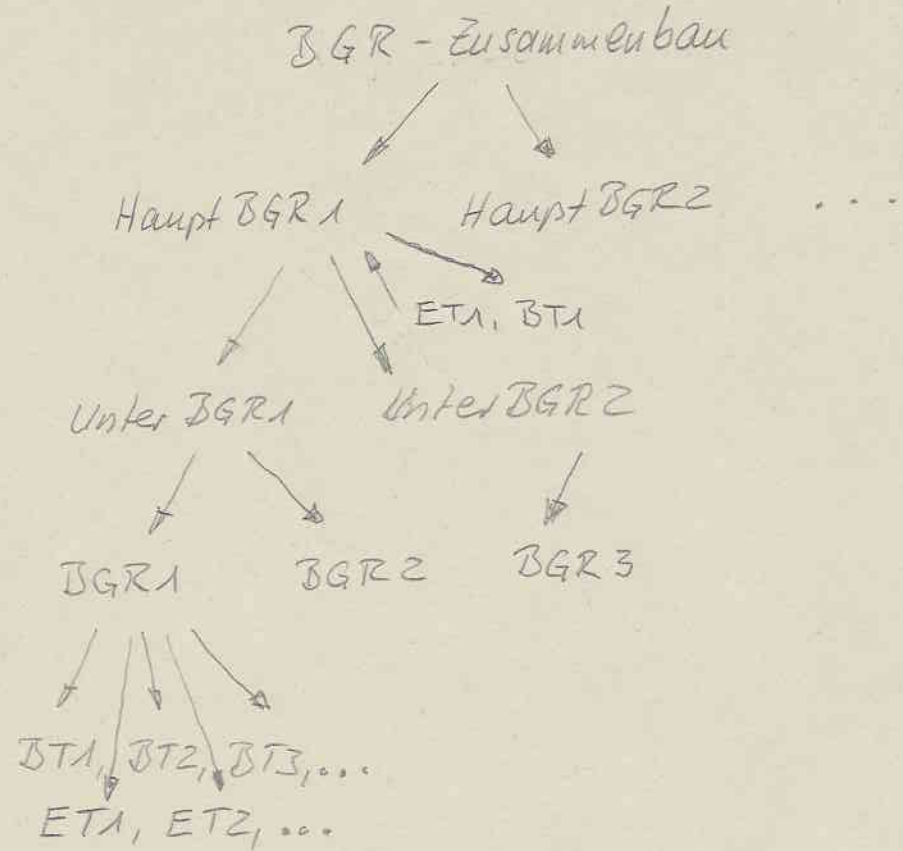 BGR - Zusammenbau
Haupt BGR1 Haupt BGR2 ...
ET1, BT1
Unter BGR1 Unter BGR2
BGR1 BGR2 BGR3
BT1, BT2, BT3, ...
ET1, ET2, ...